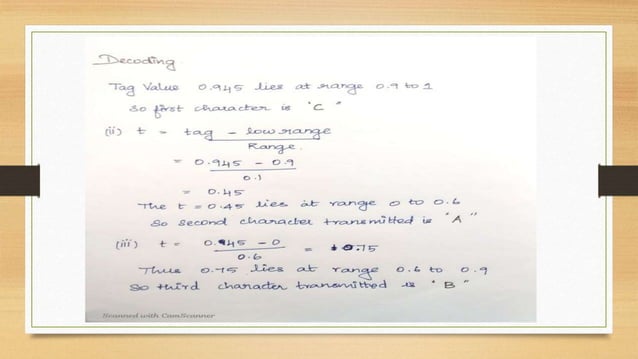 Decoding.
Tag Value 0.945 lies at range 0.9 to 1
So first character is "C"
(ii) t = tag - low range
Range.
= 0.945 - 0.9
0.1
= 0.45
The t = 0.45 lies at range 0 to 0.6
So second character transmitted is "A"
(iii) t = 0.45 - 0 = 0.75
0.6
Thus 0.75 lies at range 0.6 to 0.9
So third character transmitted is "B"
Scanned with CamScanner